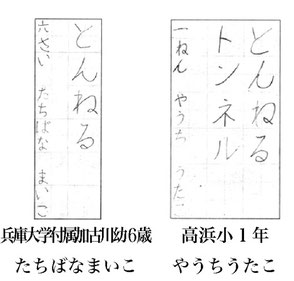 とんねる
六さい たちばな まいこ
兵庫大学付属加古川幼6歳
たちばなまいこ
とんねる
トンネル
一ねん やうち うたこ
高浜小1年
やうちうたこ